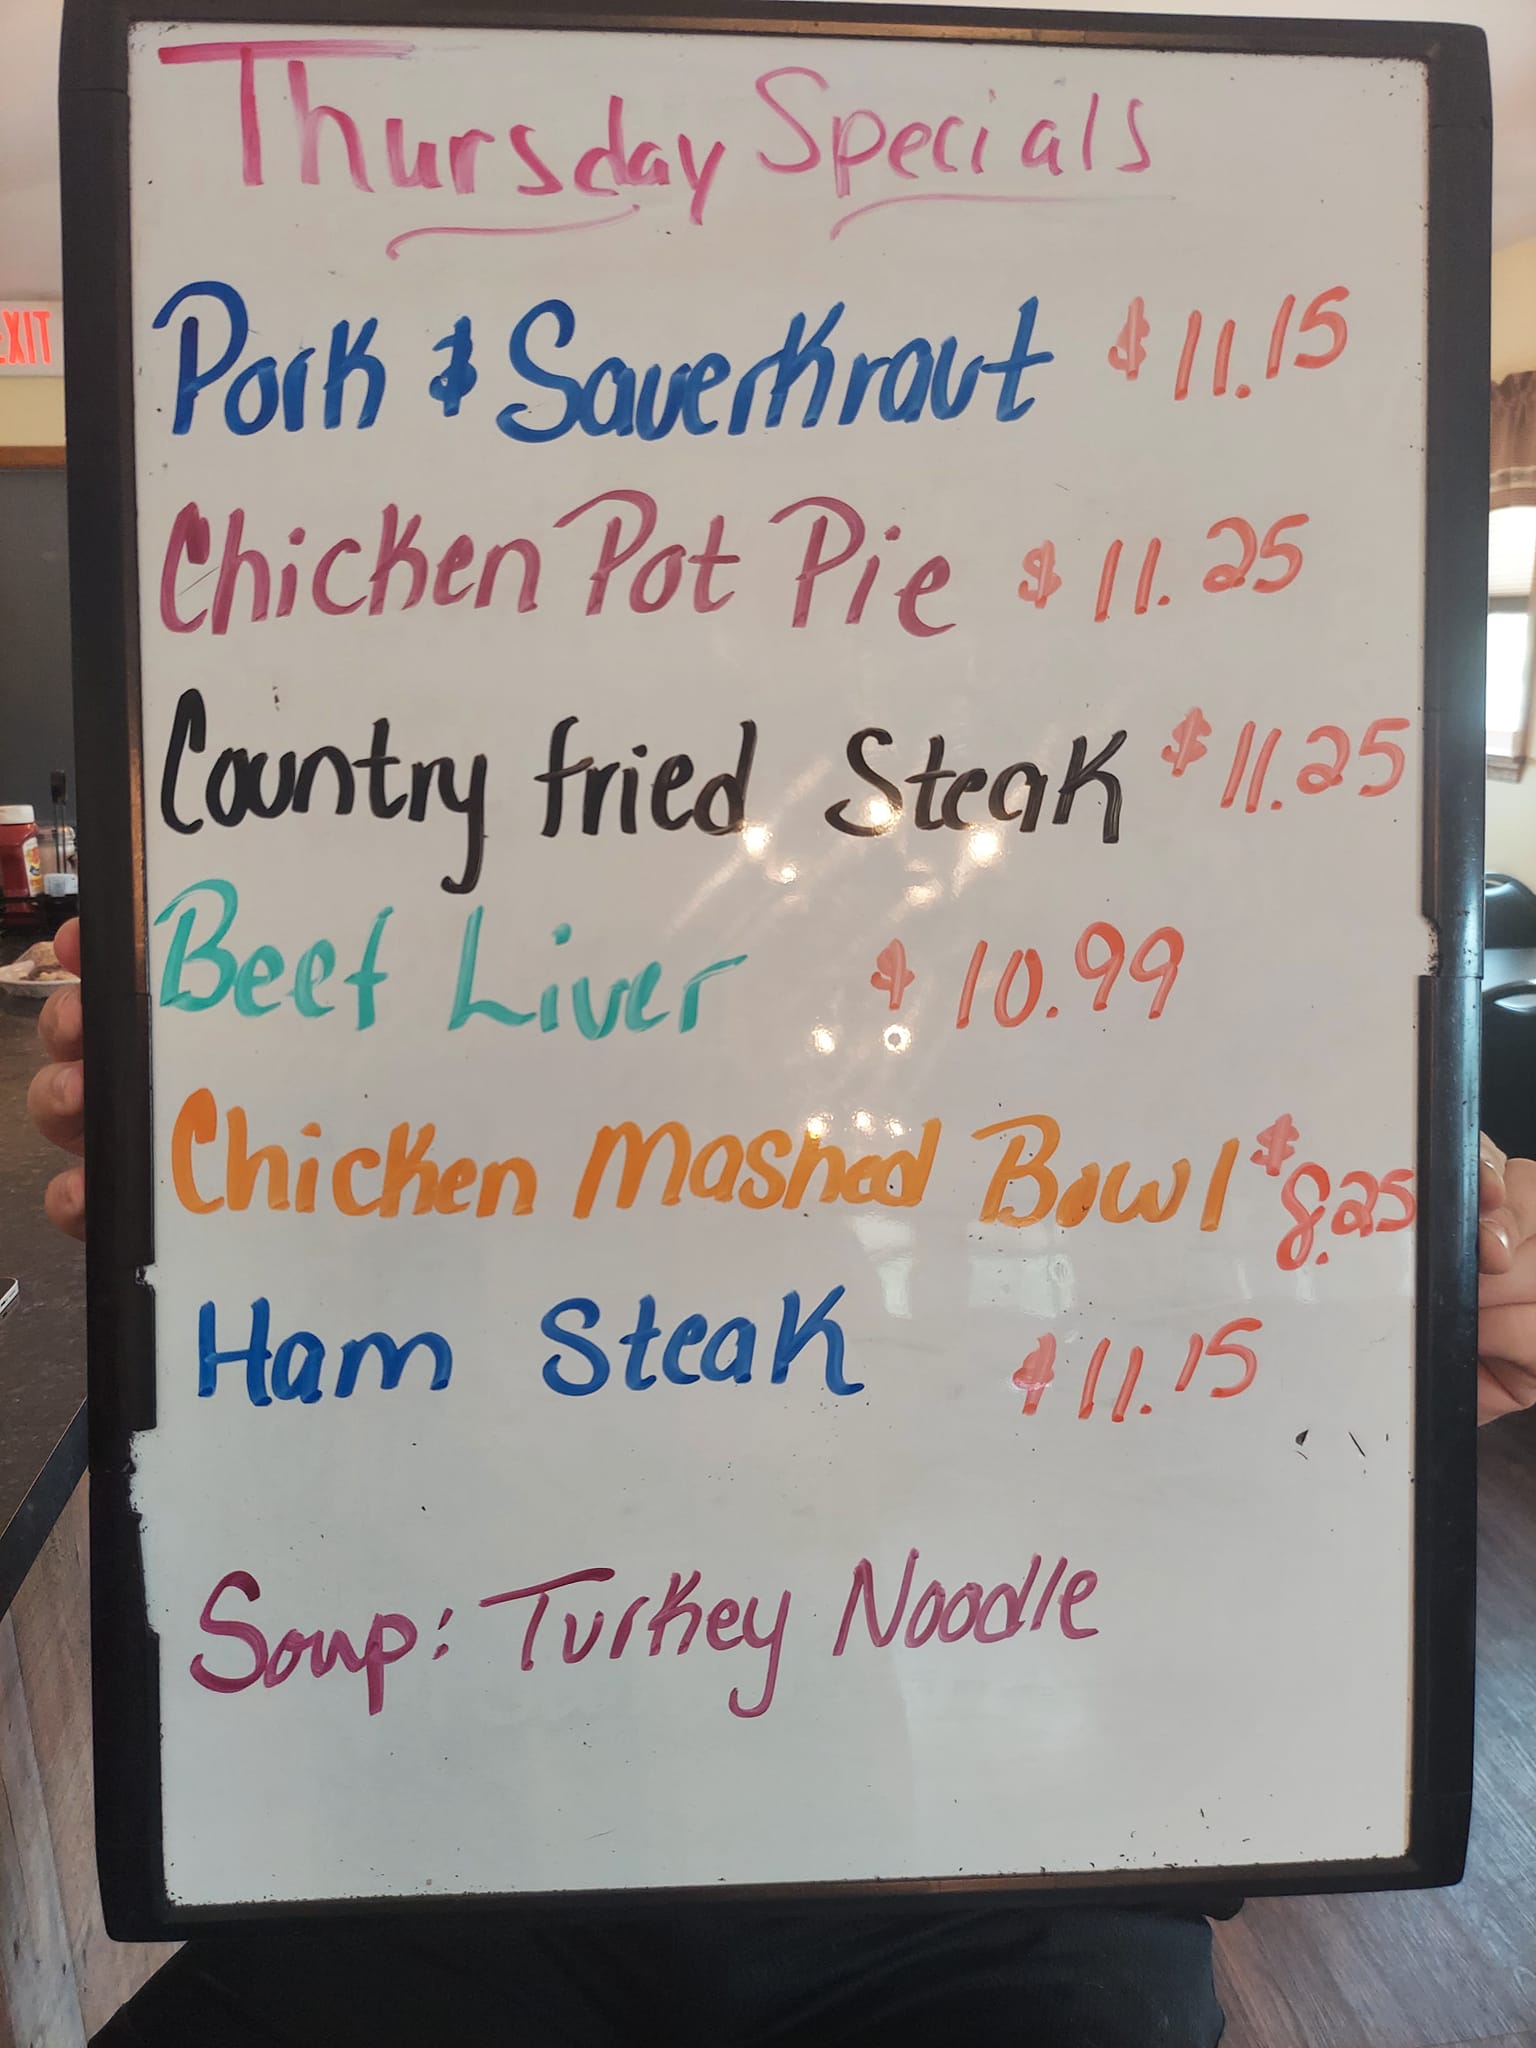 Thursday Specials
Pork & Sauerkraut $11.15
Chicken Pot Pie $11.25
Country fried Steak $11.25
Beef Liver $10.99
Chicken Mashed Bowl $8.25
Ham Steak $11.15
Soup: Turkey Noodle
EXIT